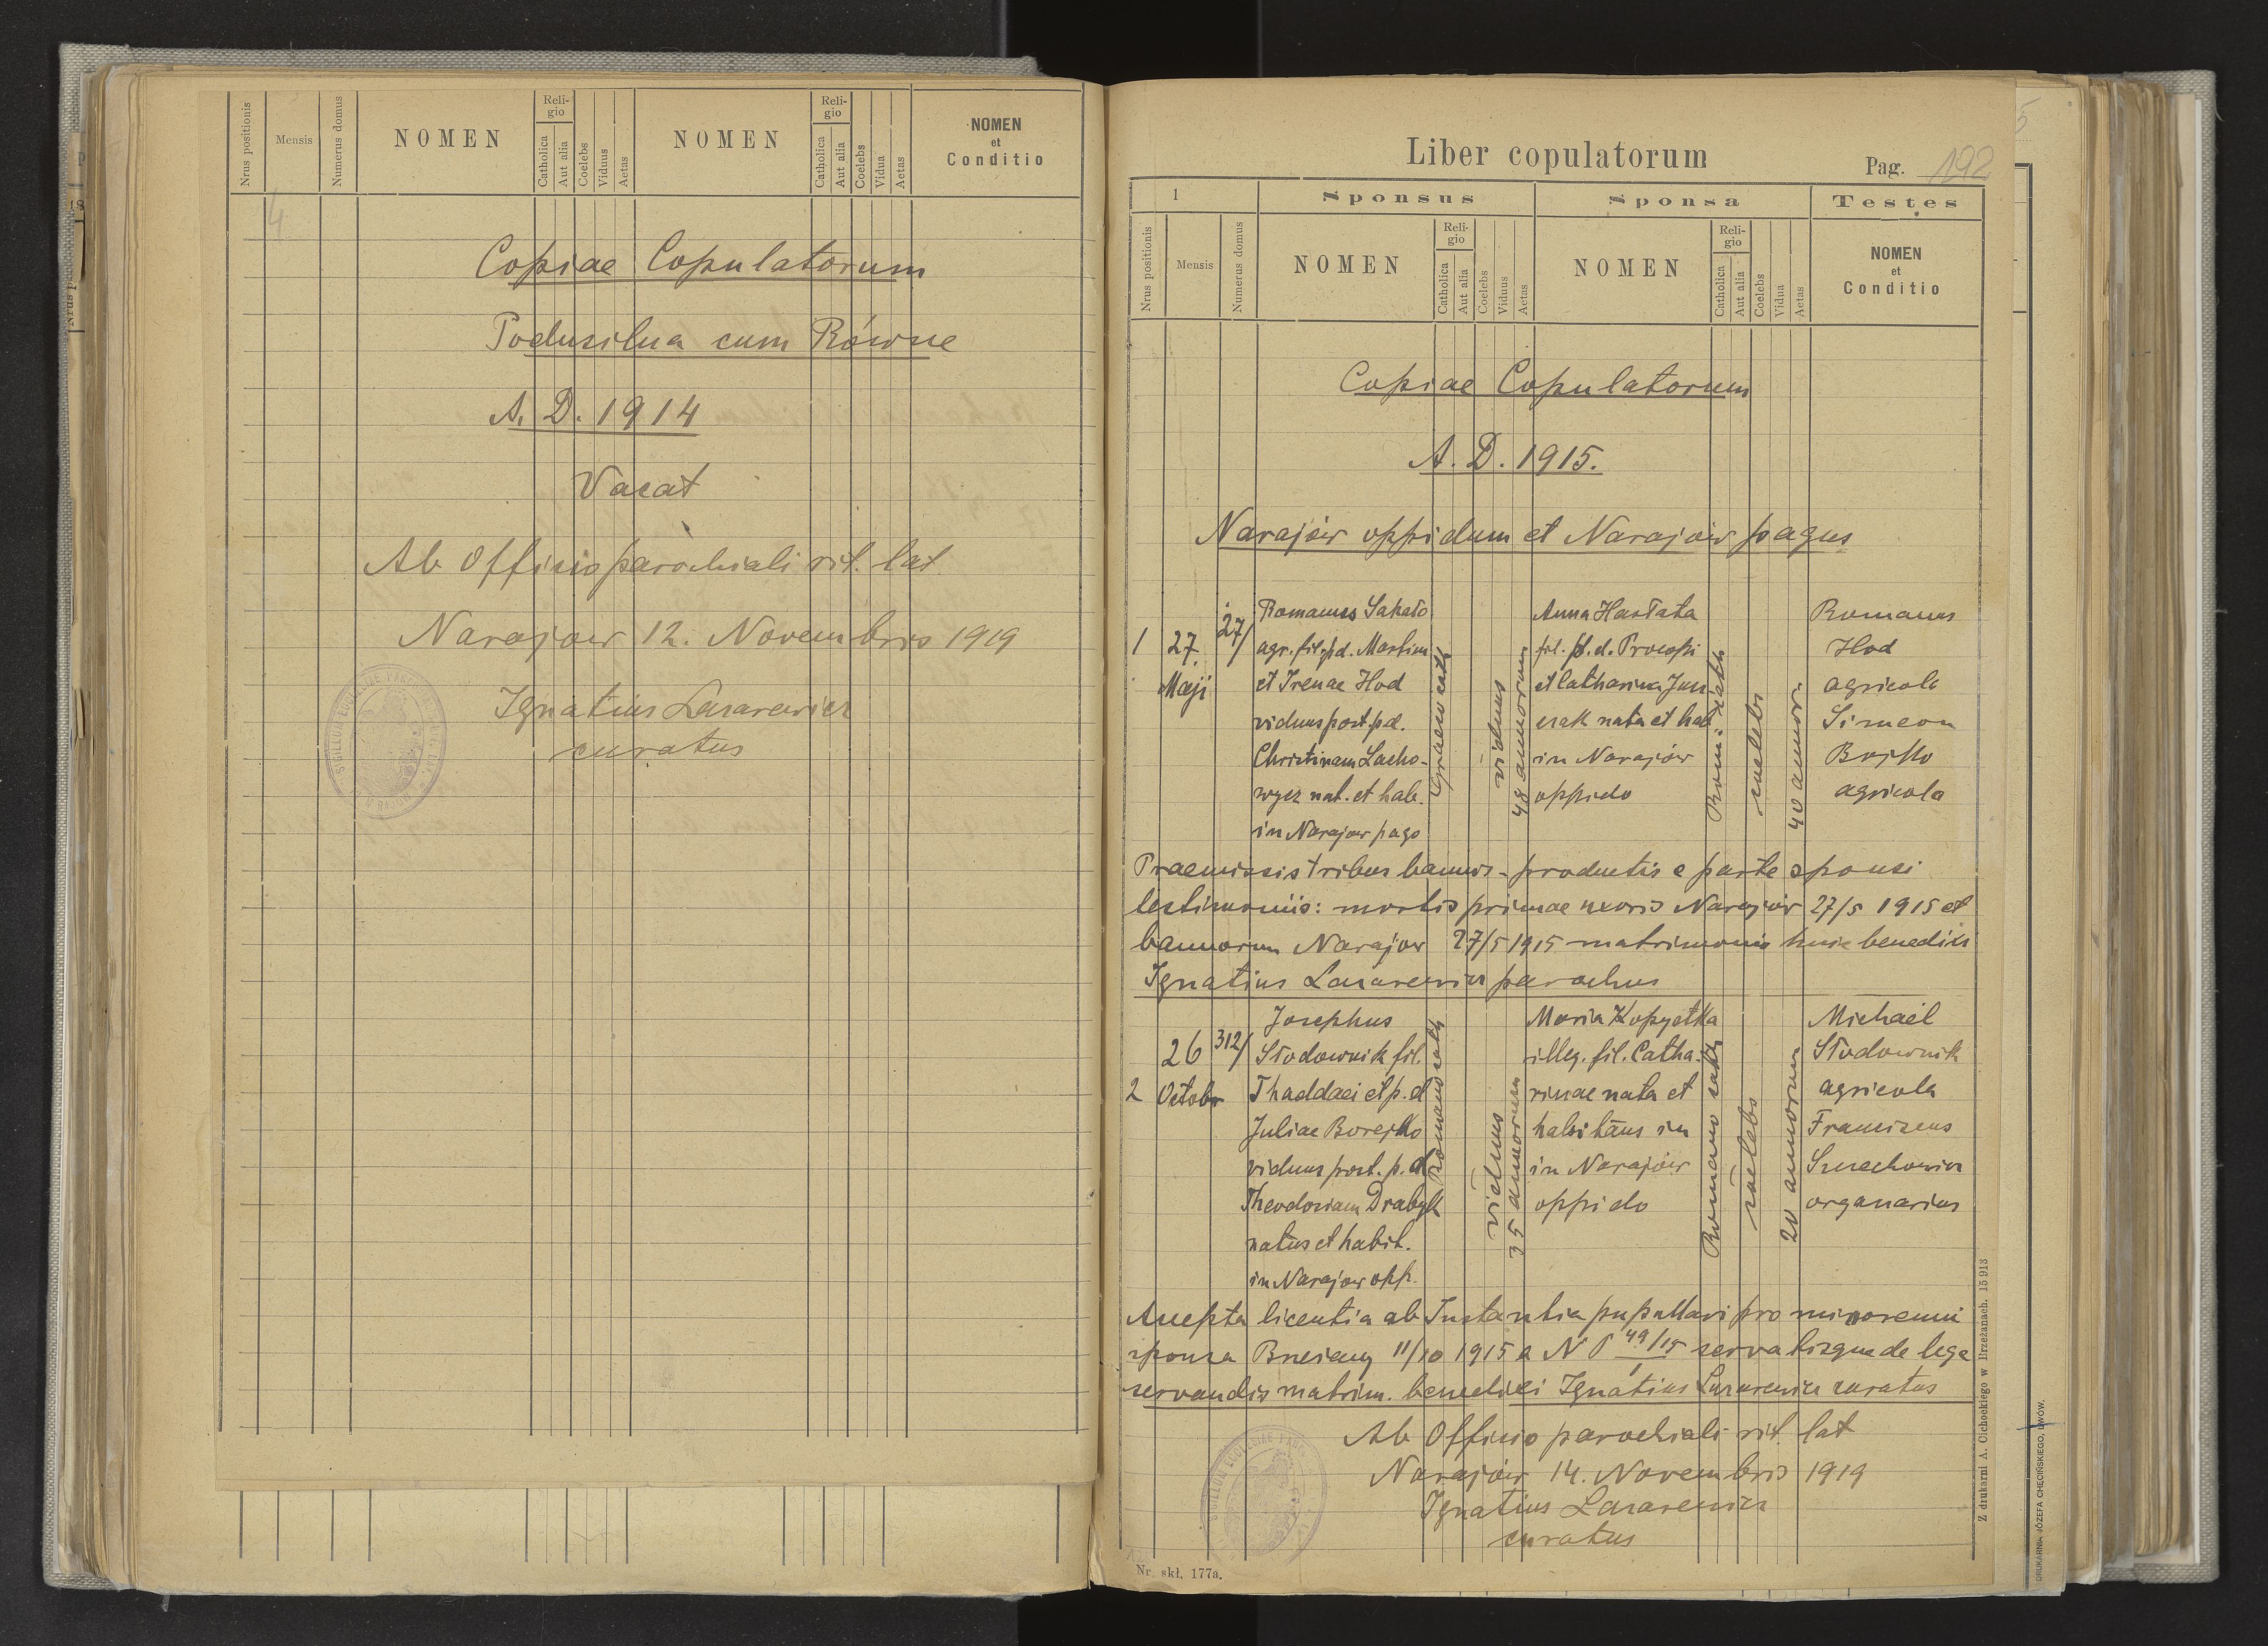 Nrus positionis
Mensis
Numerus domus
NOMEN
Reli-
gio
Catholica
Aut alia
Coelebs
Viduus
Aetas
NOMEN
Reli-
gio
Catholica
Aut alia
Coelebs
Vidua
Aetas
NOMEN
et
Conditio
4
Copiae Copulatorum
Podusilna cum Równe
A. D. 1914
Vacat
Ab Officio parochiali rit. lat.
Narajow 12. Novembris 1919
Ignatius Lazarewicz
curatus
Liber copulatorum
Pag. 192
1
Sponsus
Sponsa
Testes
Nrus positionis
Mensis
Numerus domus
NOMEN
Reli-
gio
Catholica
Aut alia
Coelebs
Viduus
Aetas
NOMEN
Reli-
gio
Catholica
Aut alia
Coelebs
Vidua
Aetas
NOMEN
et
Conditio
Copiae Copulatorum
A. D. 1915.
Narajów oppidum et Narajów pagus
1
27.
Maji
27/
Romanus
agr. fil. p.d. Martini
et Irenae Hod
viduus post p.d.
Christinam Lacho-
wycz nat. et hab.
in Narajow pago
Graeco cath
viduus
48 annorum
Anna
fil. p.d. Procopi
et Catharina Jur
czak nata et hab
in Narajów
oppido
Rom. cath
coelebs
40 annor.
Romanus
Hod
agricola
Simeon
Bojko
agricola
Praemissis tribus bannis - productis e parte sponsi
testimoniis: mortis primae uxoris Narajów 27/5 1915 et
bannorum Narajow 27/5 1915 matrimonio huic benedixi
Ignatius Lazarewicz parochus
2
26
Octobr
312/
Josephus
Słodownik fil.
Thaddaei et p. d
Juliae Borejko
viduus post. p. d
Theodoziam Drabyk
natus et habit.
in Narajow opp.
Romano cath
viduus
35 annorum
Maria Kopyetka
illeg. fil. Catha-
rinae nata et
habitans in
in Narajów
oppido
Romano cath
coelebs
20 annorum
Michaël
Słodownik
agricola
Franciscus
organarius
Accepta licentia ab Instantia pupillari pro minorenni
sponsa Brzezany 11/10 1915 a N P 49/15 servatisque de lege
1
servandis matrim. benedixi Ignatius Lazarewicz curatus
Ab Officio parochiali rit lat
Narajów 14. Novembris 1919
Ignatius Lazarewicz
curatus
Nr. skł. 177a.
Z drukarni A. Cichockiego w Brzeżanach. 15 913
DRUKARNIA JÓZEFA CHĘCIŃSKIEGO, LWÓW.